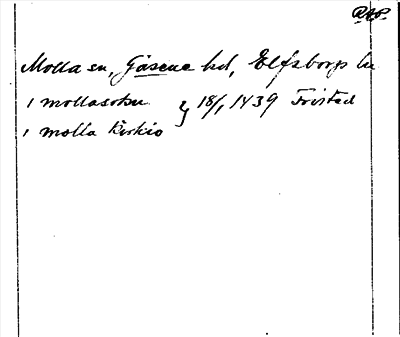 R.A.P.
Molla sn, Gäsene hd, Elfsborgs län
i mollasokn } 18/1 1439 Fristad
i molla kirkio